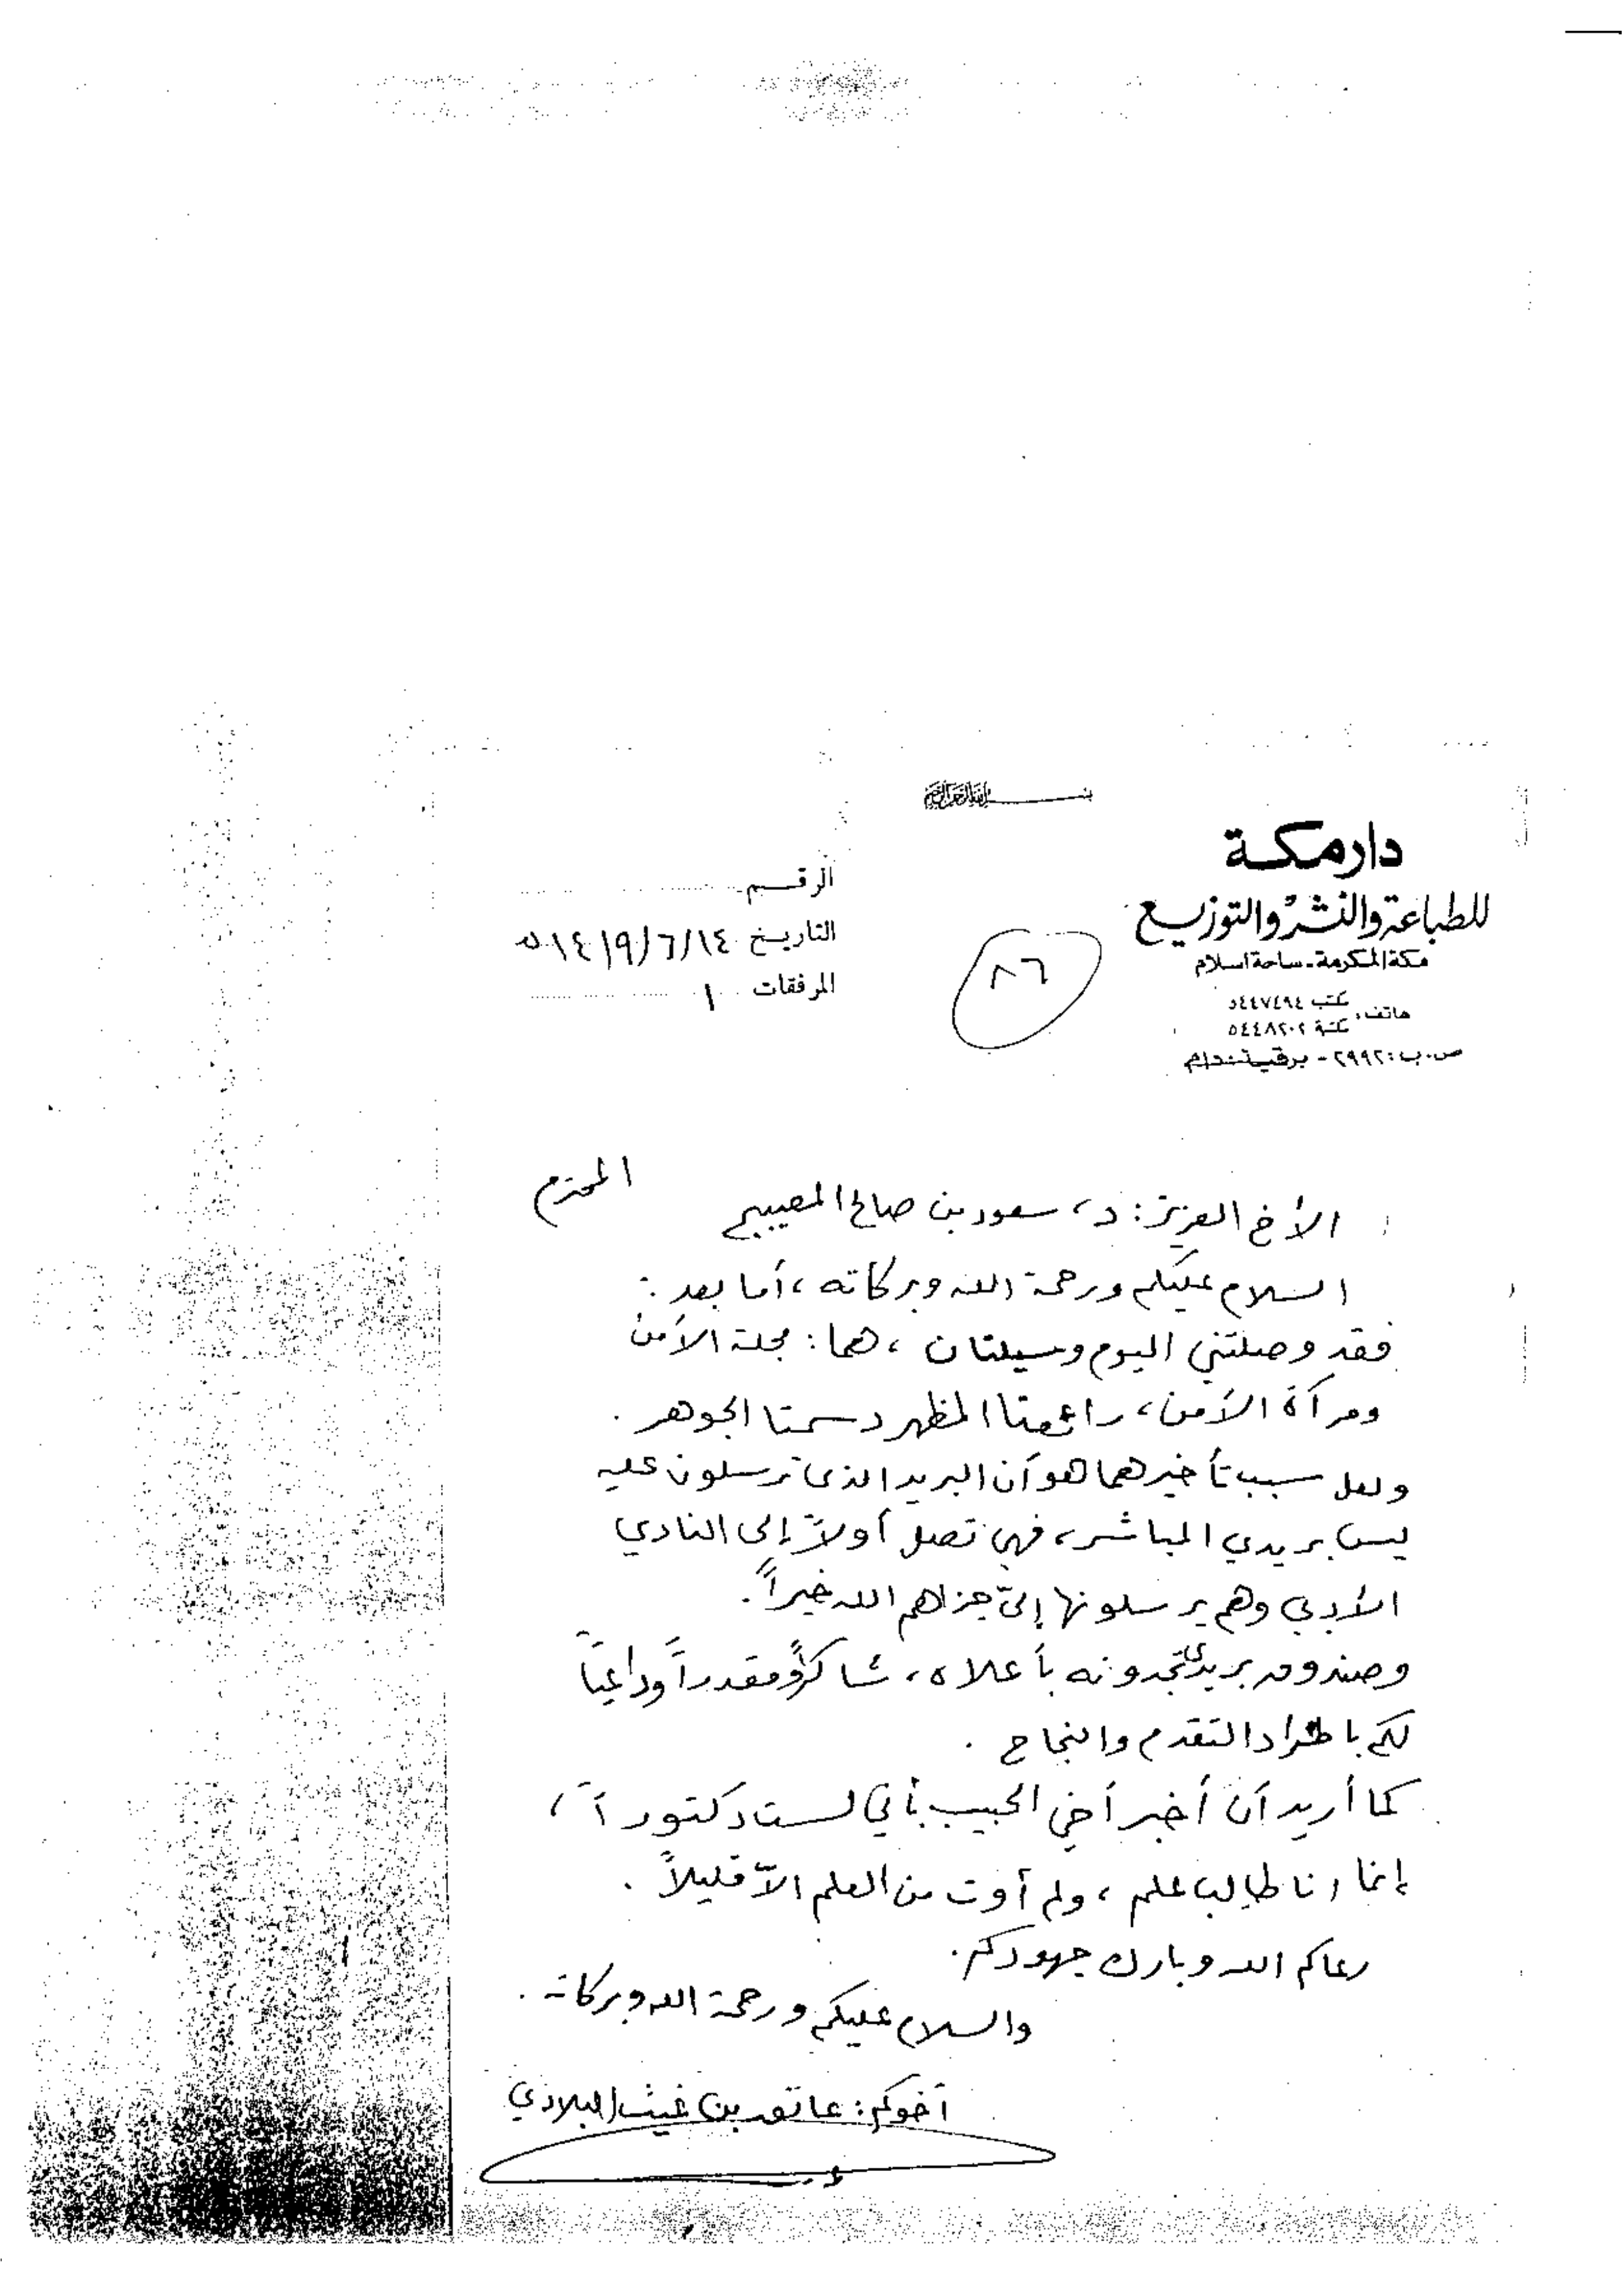 بسم الله الرحمن الرحيم
دار مكة
للطباعة والنشر والتوزيع
مكة المكرمة - ساحة اسلام
هاتف: مكتب ٥٤٤٧٤٩٤
مكتبة ٥٤٤٨٢٠٢
ص.ب: ٢٩٩٢ - برقيا: ندام
الرقم
التاريخ ١٤١٩/٦/١٤ه
المرفقات ١
٨٦
الأخ العزيز: د، سعود بن صالح المصيبيح المحترم
السلام عليكم ورحمة الله وبركاته، أما بعد:
فقد وصلتني اليوم وسيلتان، هما: مجلة الأمن
ومرآة الأمن، رائعتا المظهر دسمتا الجوهر.
ولعل سبب تأخيرهما هو أن البريد الذي ترسلون عليه
ليس بريدي المباشر، فهي تصل أولاً إلى النادي
الأدبي وهم يرسلونها إليّ جزاهم الله خيراً.
وصندوق بريدي تجدونه بأعلاه، شاكراً ومقدراً وداعياً
لكم باطراد التقدم والنجاح.
كما أريد أن أخبر أخي الحبيب بأني لست دكتوراً،
إنما أنا طالب علم، ولم أوت من العلم الاّ قليلاً.
رعاكم الله وبارك جهودكم.
والسلام عليكم ورحمة الله وبركاته.
أخوكم: عاتق بن غيث البلادي